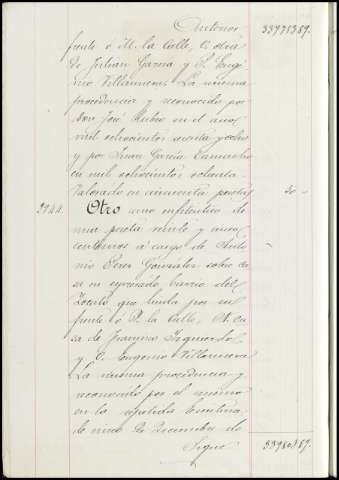 Anterior 33978389.
frente ó M. la calle, O. otra
de Julian Garcia y S. Euge
nio Villanueva. La misma
procedencia y reconocido por
Don José Rubio en el año
mil ochocientos sesenta y ocho
y por Juan Garcia Camacho
en mil ochocientos setenta.
Valorado en cincuenta pesetas 50 -
2144. Otro censo enfitéutico de
una peseta veinte y cinco
centimos á cargo de Anto
nio Perez Gonzalez sobre ca
sa en espresado barrio del
que linda por su
frente ó P. la calle, N. ca
sa de Francisco Izquierdo
y O. Eugenio Villanueva
La misma procedencia y
reconocido por el mismo
en la repetida
de nueve de Diciembre de
Sigue 33980389.